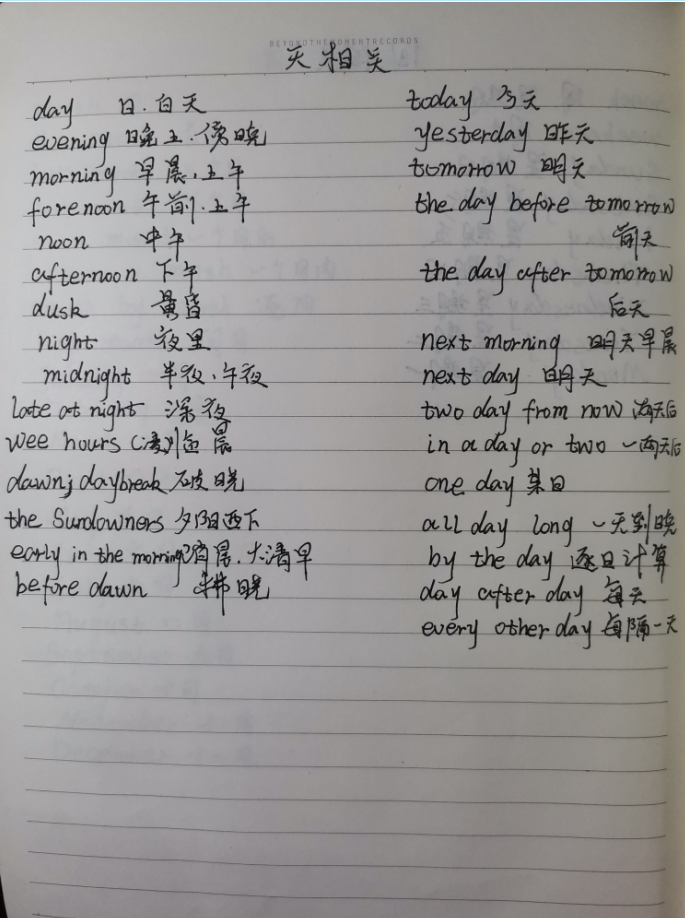 BEYONDTHEMOMENTRECORDS
天相关
day 日.白天
evening 晚上.傍晚
morning 早晨.上午
forenoon 午前.上午
noon 中午
afternoon 下午
dusk 黄昏
night 夜里
midnight 半夜.午夜
late at night 深夜
wee hours 凌晨
dawn; daybreak 破晓
the Sundowners 夕阳西下
early in the morning 清晨.大清早
before dawn 拂晓
today 今天
yesterday 昨天
tomorrow 明天
the day before tomorrow
前天
the day after tomorrow
后天
next morning 明天早晨
next day 明天
two day from now 两天后
in a day or two 一两天后
one day 某日
all day long 一天到晚
by the day 逐日计算
day after day 每天
every other day 每隔一天